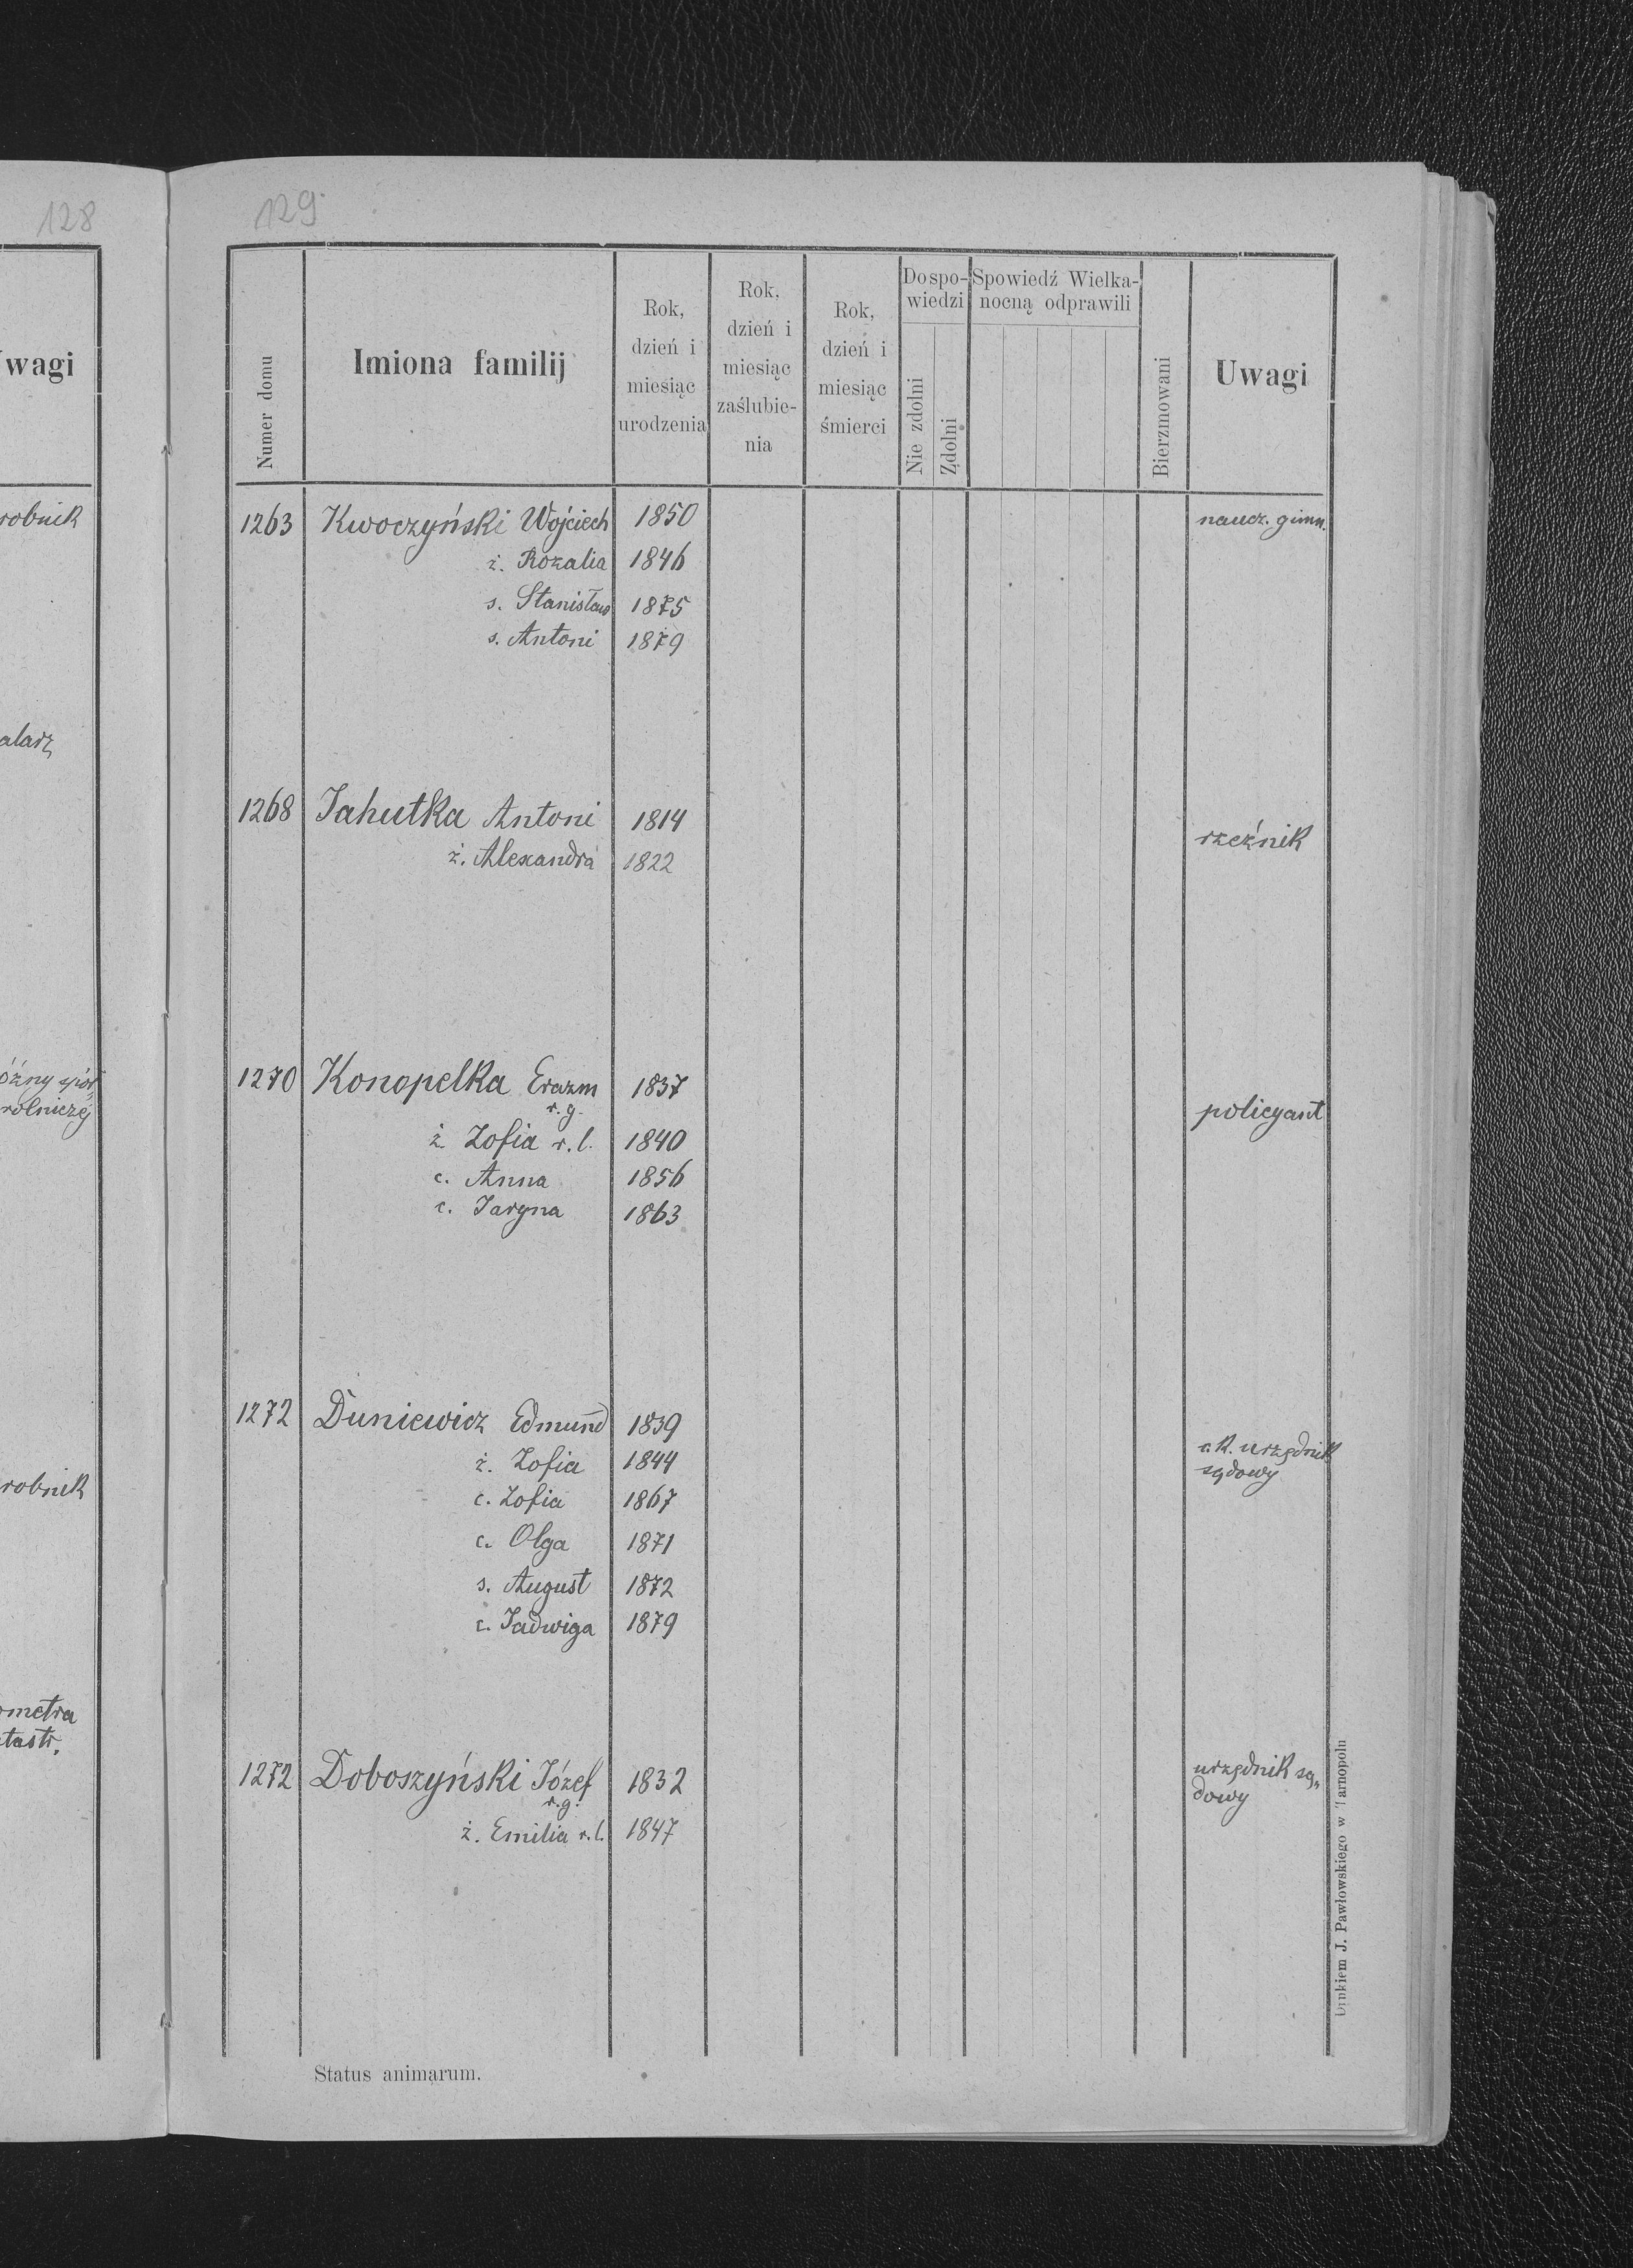 128
wagi
robnik
alarz
rolniczej
robnik
ometra
tastr.
129
Numer domu
Imiona familij
Rok, dzień i miesiąc urodzenia
Rok, dzień i miesiąc zaślubie-nia
Rok, dzień i miesiąc śmierci
Do spo-wiedzi
Nie zdolni
Zdolni
Spowiedź Wielka-nocną odprawili
Bierzmowani
Uwagi
1263 Kwoczyński Wojciech 1850 naucz. gimn.
ż. Rozalia 1846
s. Stanisław 1875
s. Antoni 1879
1268 Jahutka Antoni 1814 rzeźnik
ż. Alexandra 1822
1270 Konopelka Erazm 1837 policyant
r. g.
ż. Zofia r. l. 1840
c. Anna 1856
c. Jaryna 1863
1272 Duniewicz Edmund 1839 c. k. urzędnik
ż. Zofia 1844 sądowy
c. Zofia 1867
c. Olga 1871
s. August 1872
c. Jadwiga 1879
1272 Doboszyński Józef 1832 urzędnik są„
r. g. dowy
ż. Emilia r. l. 1847
Status animarum.
Drukiem J. Pawłowskiego w Tarnopolu